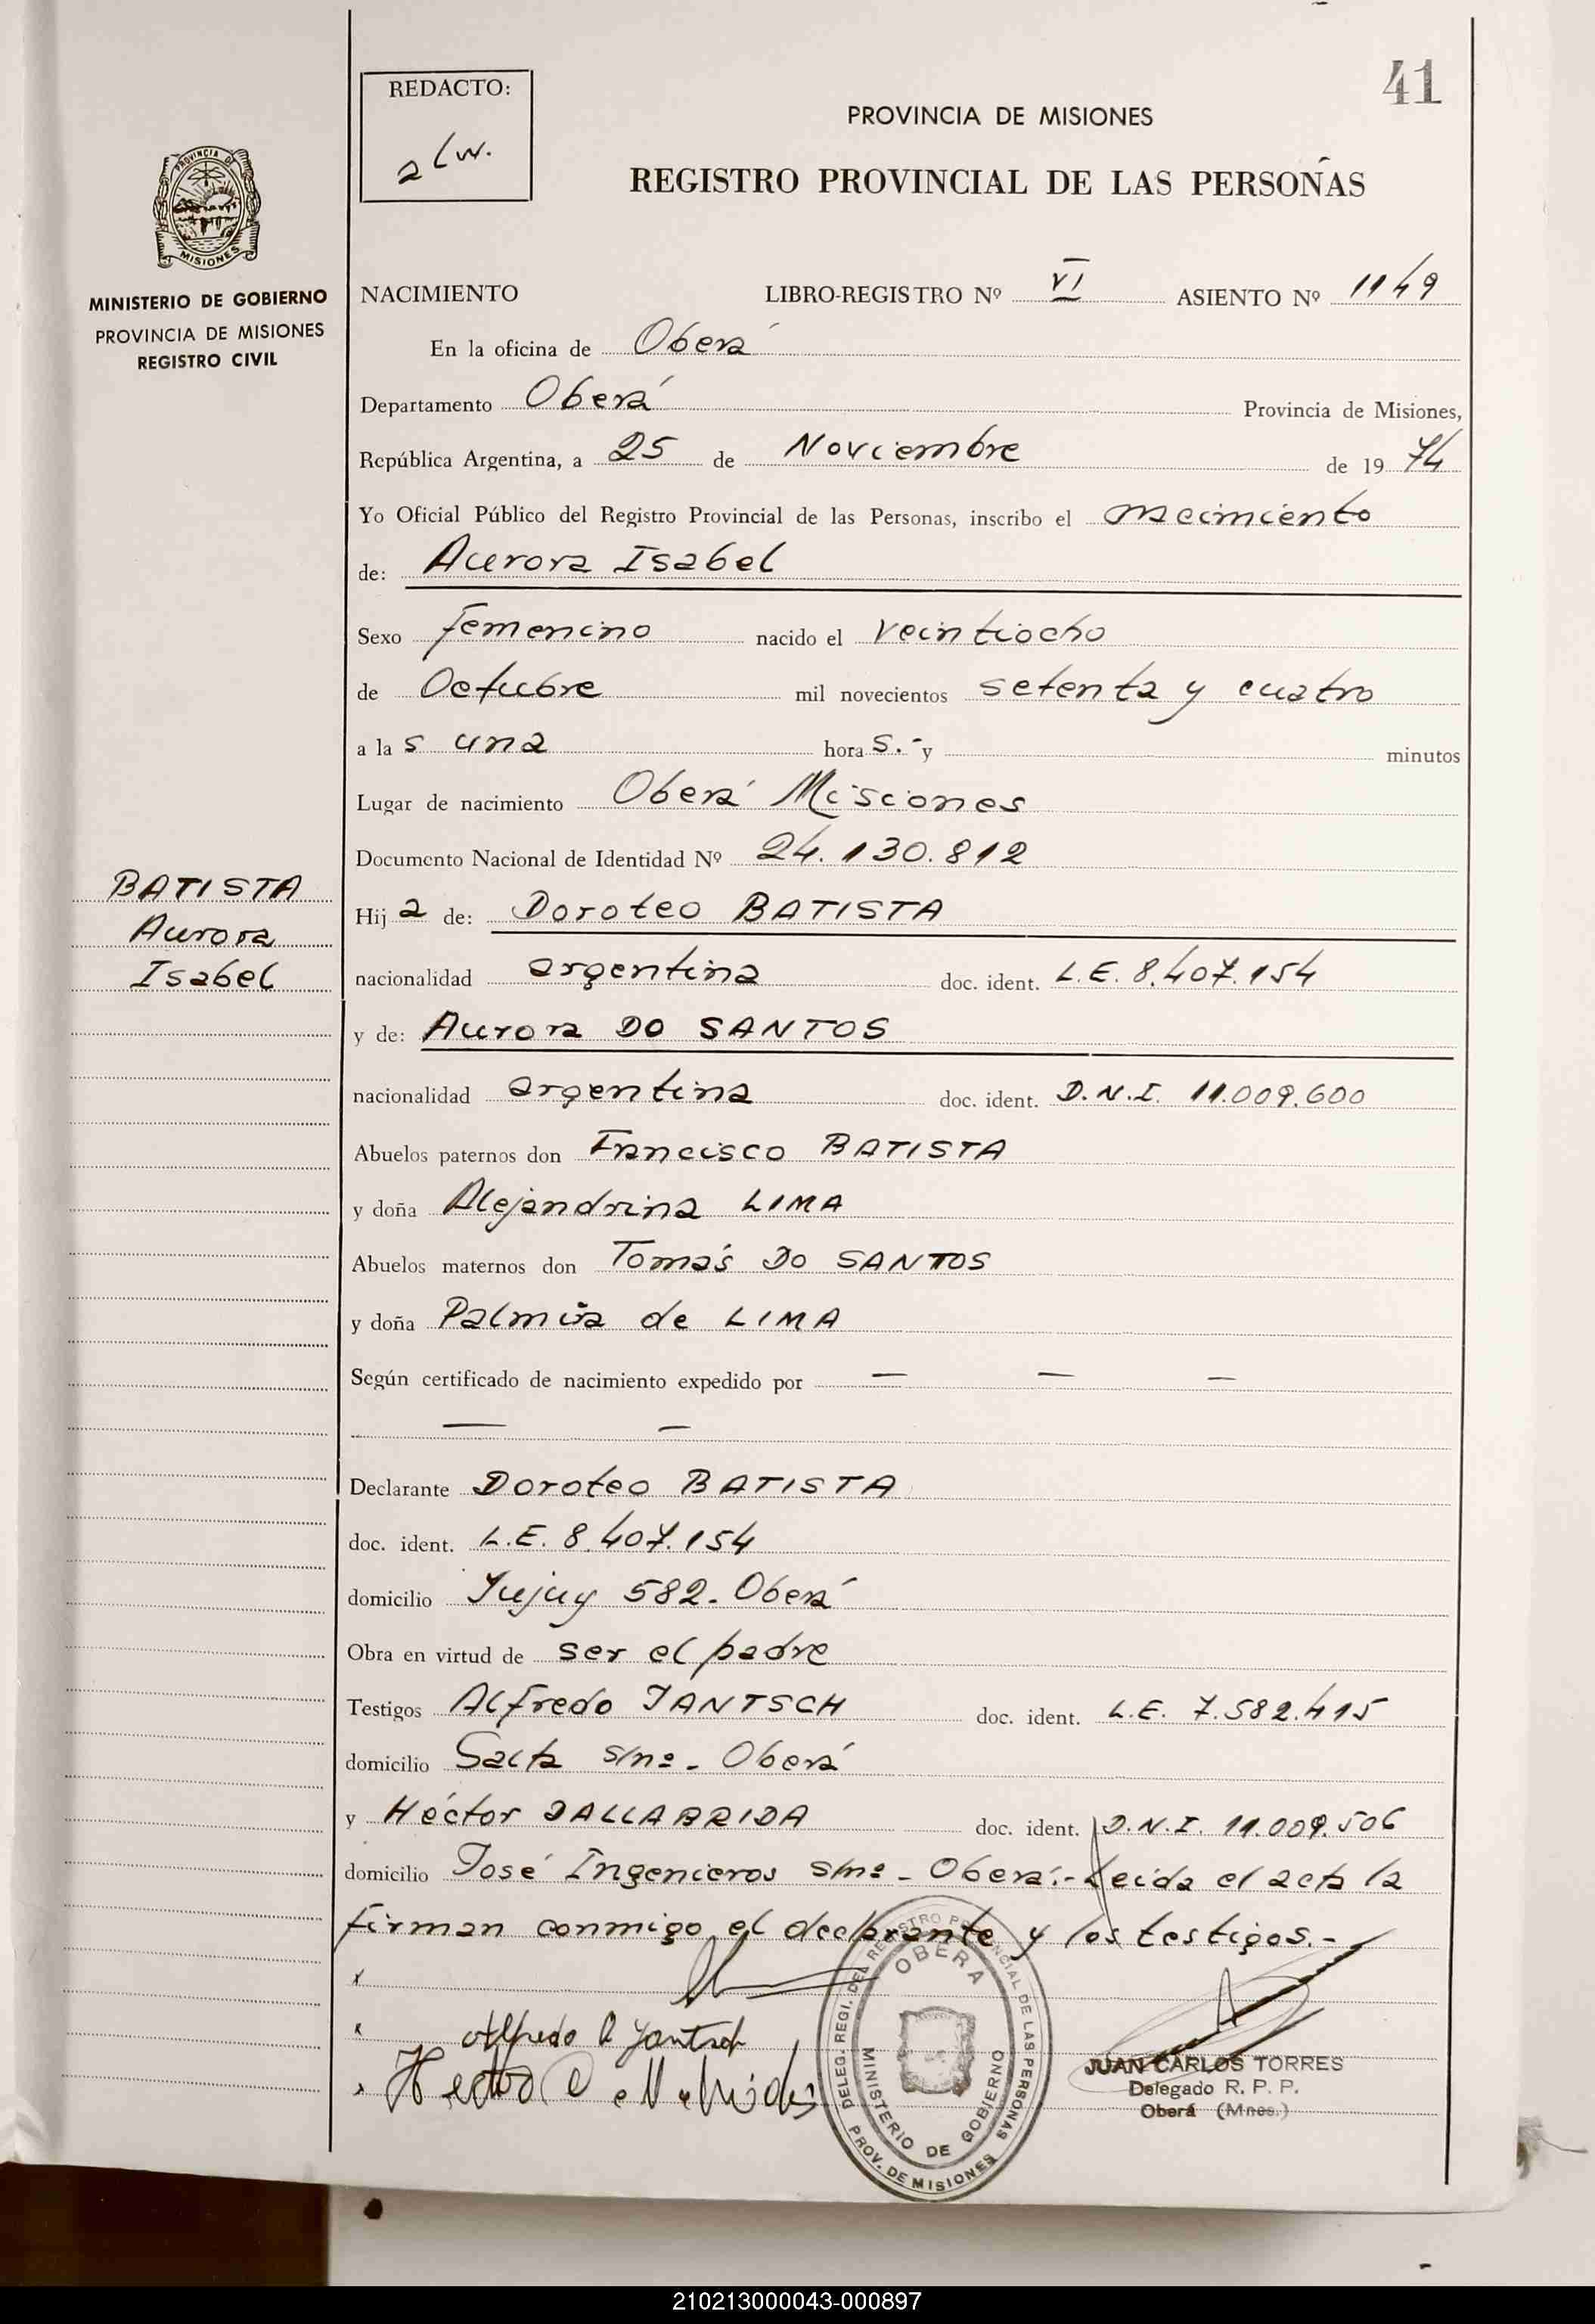 41
REDACTO:
PROVINCIA DE MISIONES
REGISTRO PROVINCIAL DE LAS PERSONAS
PROVINCIA DE
MISIONES
MINISTERIO DE GOBIERNO
PROVINCIA DE MISIONES
REGISTRO CIVIL
NACIMIENTO LIBRO-REGISTRO Nº VI ASIENTO Nº 1149
En la oficina de Oberá
Departamento Oberá Provincia de Misiones,
República Argentina, a 25 de Noviembre de 19 74
Yo Oficial Público del Registro Provincial de las Personas, inscribo el nacimiento
de: Aurora Isabel
Sexo femenino nacido el veintiocho
de Octubre mil novecientos setenta y cuatro
a la s una hora s.- y minutos
Lugar de nacimiento Oberá Misiones
Documento Nacional de Identidad Nº 24.130.812
BATISTA
Aurora
Isabel
Hij a de: Doroteo BATISTA
nacionalidad argentina doc. ident. L.E. 8.407.154
y de: Aurora DO SANTOS
nacionalidad argentina doc. ident. D.N.I. 11.009.600
Abuelos paternos don Francisco BATISTA
y doña Alejandrina LIMA
Abuelos maternos don Tomás DO SANTOS
y doña Palmira de LIMA
Según certificado de nacimiento expedido por — — —
— —
Declarante Doroteo BATISTA
doc. ident. L.E. 8.407.154
domicilio Jujuy 582. Oberá
Obra en virtud de ser el padre
Testigos Alfredo JANTSCH doc. ident. L.E. 7.582.415
domicilio Salta s/nº - Oberá
y Héctor DALLABRIDA doc. ident. D.N.I. 11.009.506
domicilio José Ingenieros s/nº - Oberá.- Leida el acta la
firman conmigo el declarante y los testigos.-
x
x Alfredo Jantsch
x Hector
DELEG. REGI. DEL REGISTRO PROVINCIAL DE LAS PERSONAS
OBERA
MINISTERIO DE GOBIERNO
PROV. DE MISIONES
JUAN CARLOS TORRES
Delegado R. P. P.
Oberá (Mnes.)
210213000043-000897